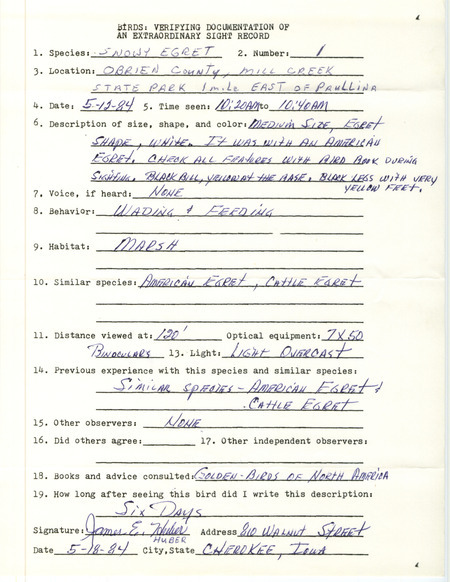 BIRDS: VERIFYING DOCUMENTATION OF
AN EXTRAORDINARY SIGHT RECORD
1. Species: SNOWY EGRET 2. Number: 1
3. Location: OBRIEN COUNTY, MILL CREEK
STATE PARK 1 mile EAST OF PAULLINA
4. Date: 5-12-84 5. Time seen: 10:20AM to 10:40AM
6. Description of size, shape, and color: MEDIUM SIZE, EGRET
SHAPE, WHITE. IT WAS WITH AN AMERICAN
EGRET. CHECK ALL FEATURES WITH BIRD BOOK DURING
SIGHTING. BLACK BILL, YELLOW AT THE BASE. BLACK LEGS WITH VERY
YELLOW FEET.
7. Voice, if heard: NONE
8. Behavior: WADING & FEEDING
9. Habitat: MARSH
10. Similar species: AMERICAN EGRET, CATTLE EGRET
11. Distance viewed at: 120' Optical equipment: 7X50
BINOCULARS 13. Light: LIGHT OVERCAST
14. Previous experience with this species and similar species:
SIMILAR SPECIES - AMERICAN EGRET &
CATTLE EGRET
15. Other observers: NONE
16. Did others agree: 17. Other independent observers:
18. Books and advice consulted: GOLDEN-BIRDS OF NORTH AMERICA
19. How long after seeing this bird did I write this description:
SIX DAYS
Signature: James E. Huber Address 810 WALNUT STREET
HUBER
Date 5-18-84 City, State CHEROKEE, IOWA